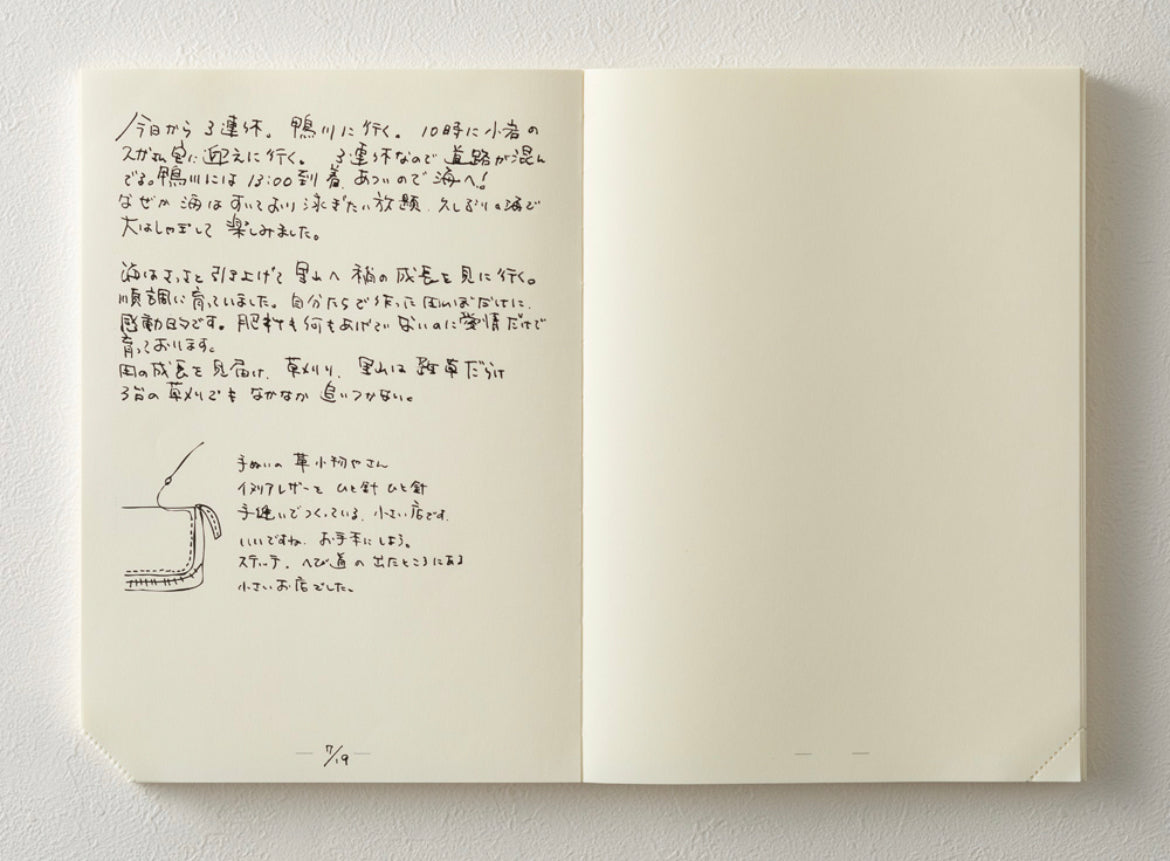 今日から3連休。鴨川に行く。10時に小岩の
スガさん宅に迎えに行く。3連休なので道路が混ん
でる。鴨川には13:00到着、あついので海へ!
なぜか海はすいており泳ぎたい放題、久しぶりの海で
大はしゃぎして楽しみました。
海はさっさと引き上げて里山へ稲の成長を見に行く。
順調に育っていました。自分たちで作った田んぼだけに、
感動的です。肥料も何もあげていないのに愛情だけで
育っております。
田の成長を見届け、草刈り、里山は雑草だらけ
3台の草刈りでもなかなか追いつかない。
手ぬいの革小物やさん
イタリアレザーをひと針ひと針
手縫いでつくっている、小さい店です。
いいですね、お手本にしよう。
ステッチ、へび道の出たところにある
小さいお店でした。
7/19